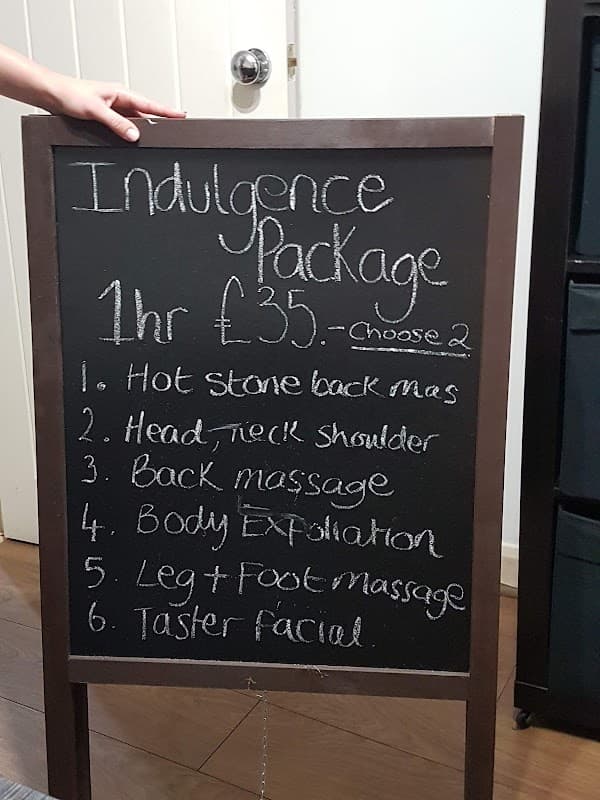 Indulgence
Package
1hr £35.- Choose 2
1. Hot stone back mas
2. Head, neck shoulder
3. Back massage
4. Body Exfoliation
5. Leg + Foot massage
6. Taster facial.